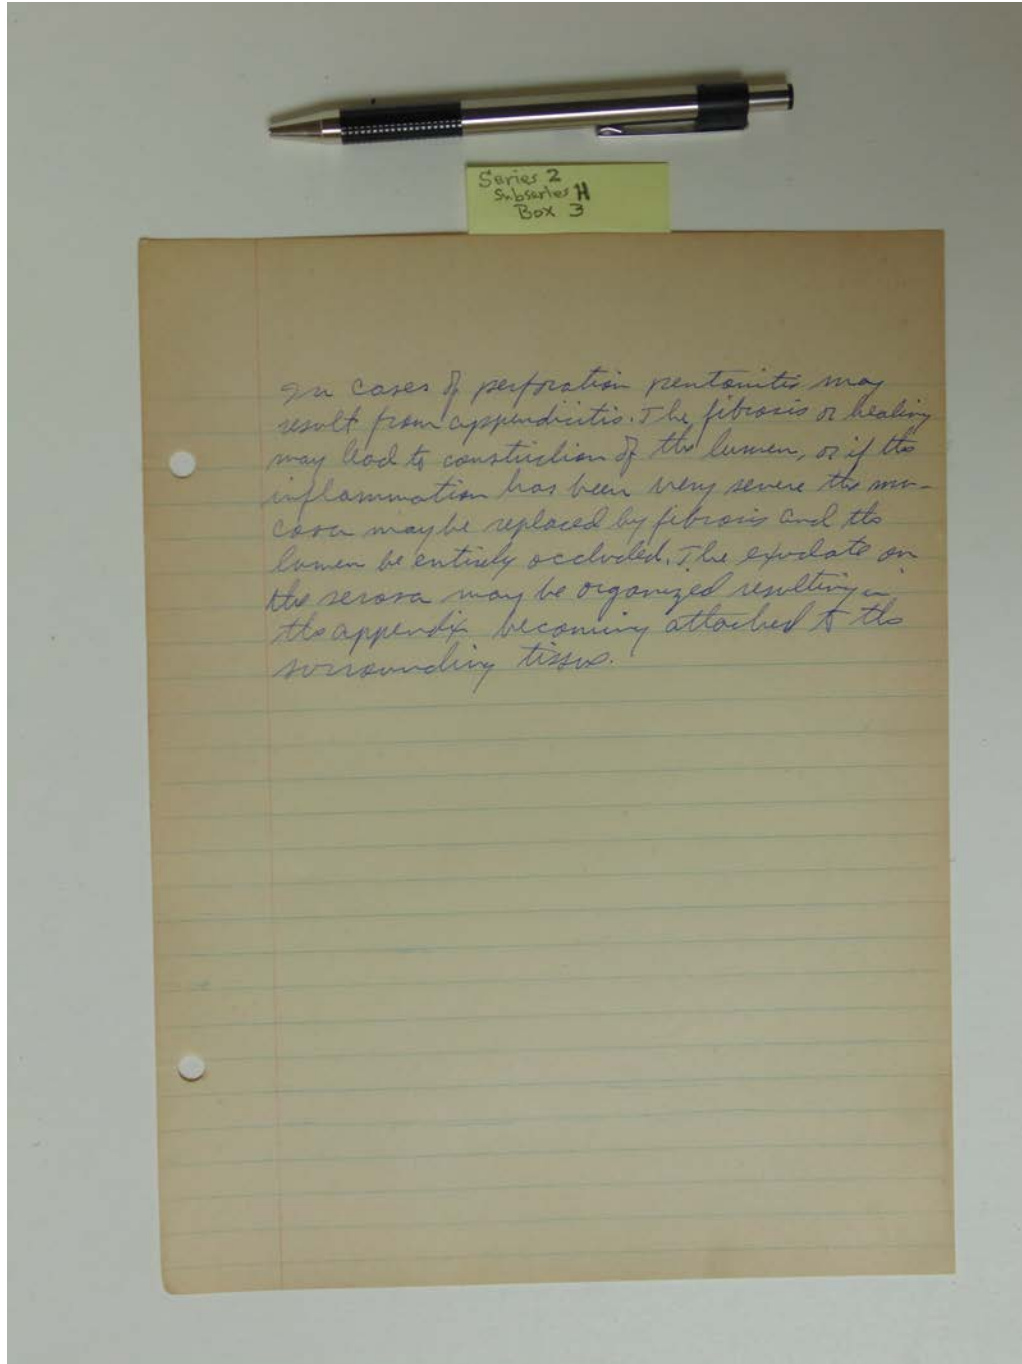 Series 2
Subseries H
Box 3
In cases of perforation peritonitis may
result from appendicitis. The fibrosis or healing
may lead to constriction of the lumen, or if the
inflammation has been very severe the mu-
cosa may be replaced by fibrosis and the
lumen be entirely occluded. The exudate on
the serosa may be organized resulting in
the appendix becoming attached to the
surrounding tissue.